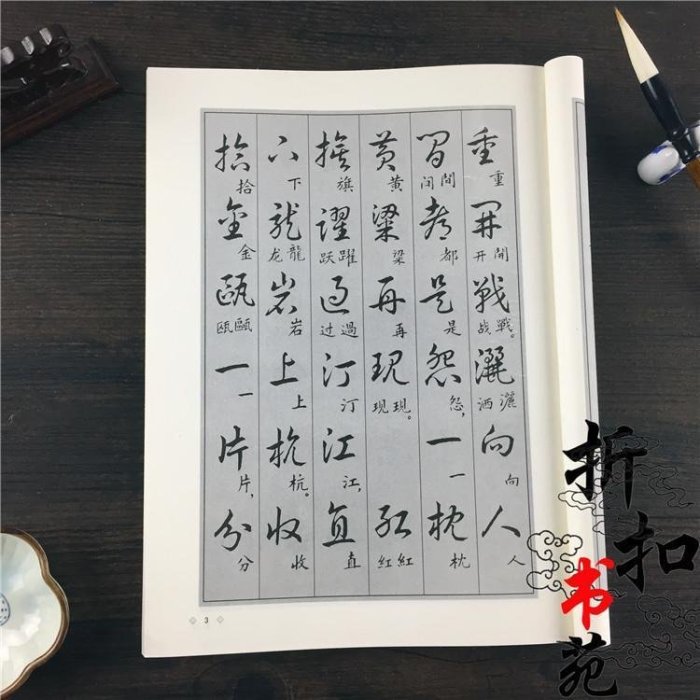 重重開开開戰战戰。灑洒灑向向人人
間间間都都是是怨怨,一一枕枕
黄黄粱粱再再現现現。紅红紅
旗旗躍跃躍過过過汀汀江江,直直
下下龍龙龍岩岩上上杭杭。收收
拾拾金金甌瓯甌一一片片,分分
3
折扣书苑